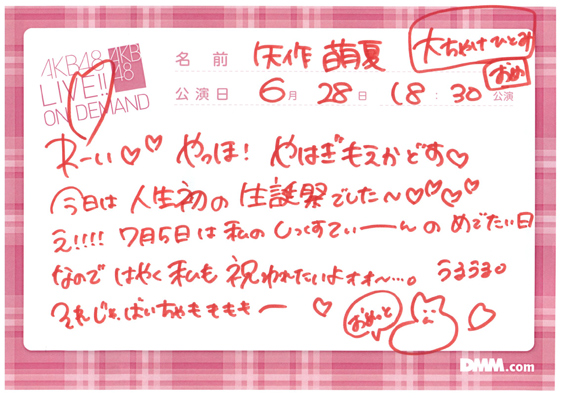 AKB48
LIVE!!
ON DEMAND
AKB
48
名前 矢作 萌夏
大たやけ ひとみ
おめ
公演日 6月 28日 18:30 公演
わーい♡♡ やっほ! やはぎもえかどす♡
今日は 人生初の 生誕祭でした〜♡♡♡♡
え!!!! 7月5日は 私の しっくすてぃーーんの めでたい日
なので はやく私も 祝われたいよォォ〜…。 うるうる。
それじゃ、ばいちゃももももー ♡
おめっと
DMM.com